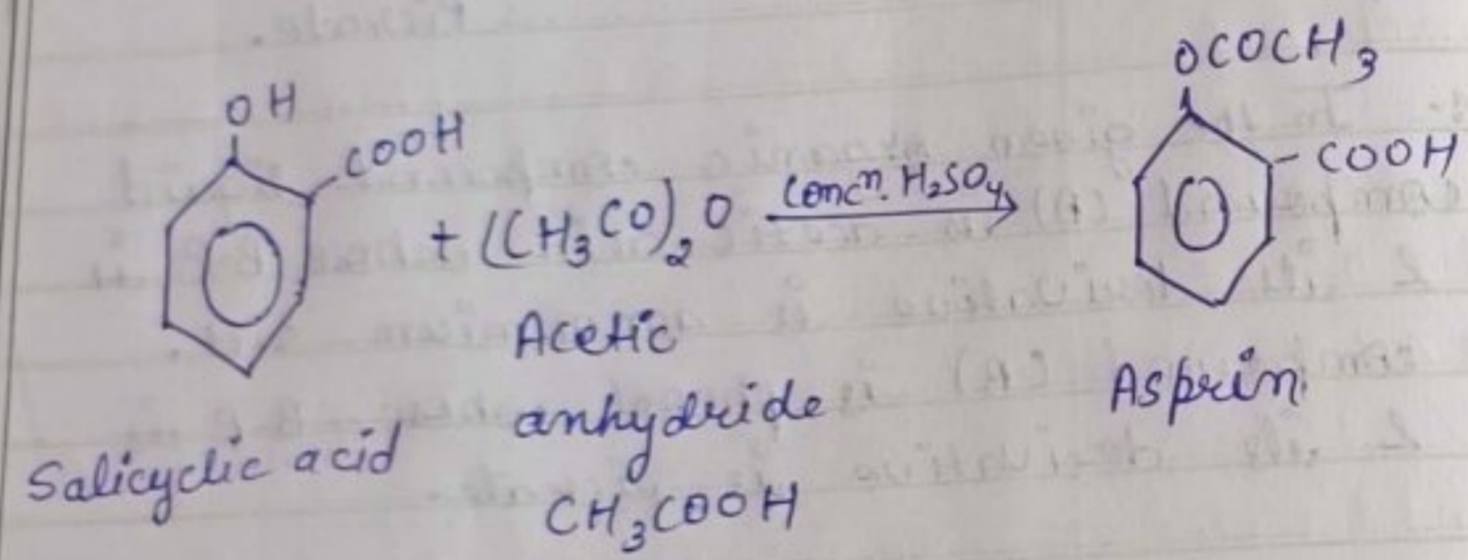 OH
COOH
+ (CH₃CO)₂O
Concⁿ. H₂SO₄
OCOCH₃
COOH
Salicyclic acid
Acetic
anhydride
CH₃COOH
Asprin